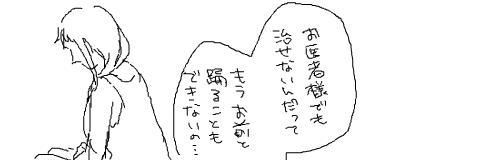 お医者様でも
治せないんだって
もうお前と
踊ることも
できないの…